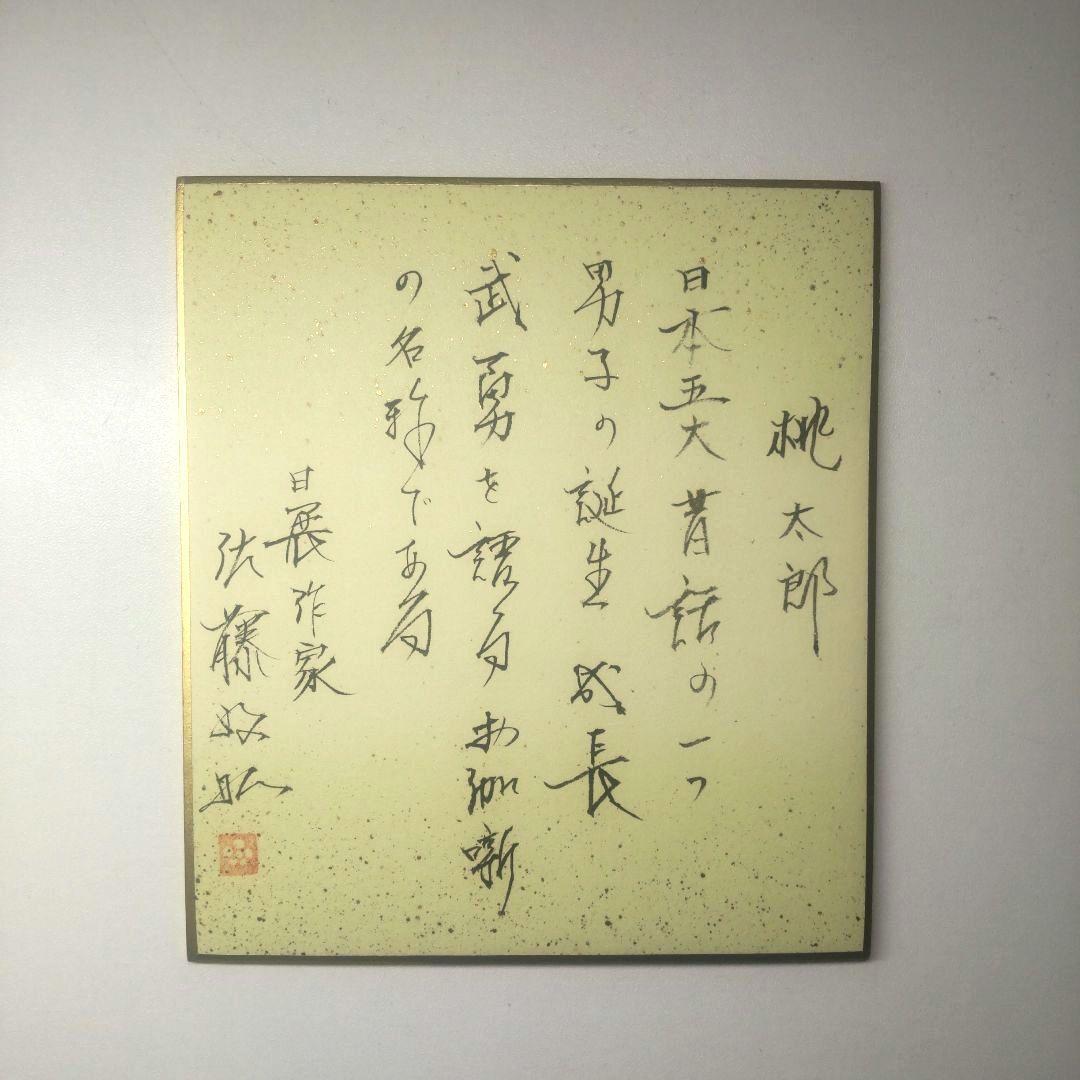 桃太郎
日本五大昔話の一つ
男子の誕生 成長
武勇を語るお伽噺
の名称である
日展作家
佐藤